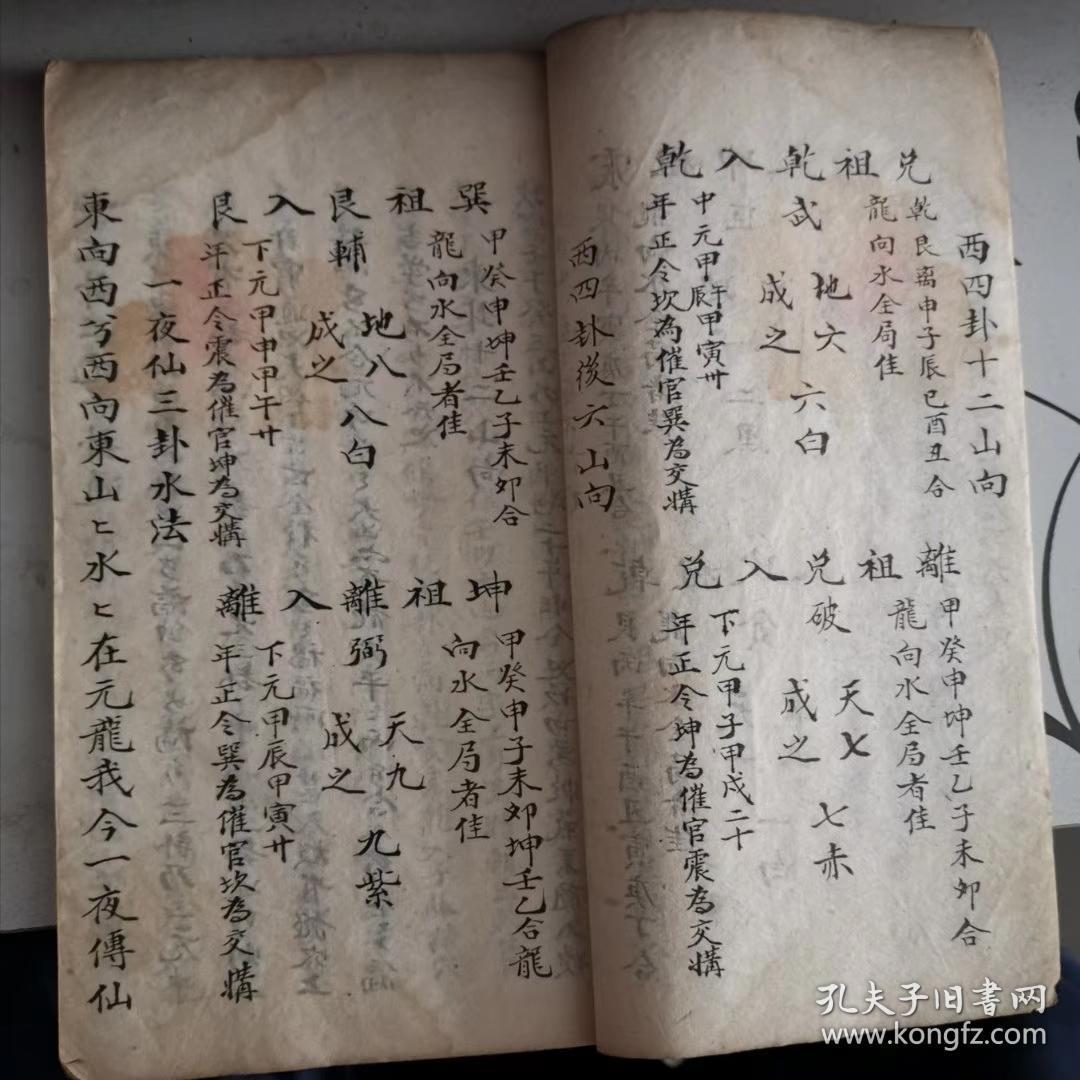 西四卦十二山向
兌祖乾入乾
乾艮离申子辰巳酉丑合
龍向水全局佳
武
地六
成之
六白
中元甲辰午甲寅卅
年正令坎為催官巽為交媾
離祖兌入兌
甲癸申坤壬乙子未卯合
龍向水全局者佳
破
天七
成之
七赤
下元甲子甲戌二十
年正令坤為催官震為交媾
西四卦後六山向
巽祖艮入艮
甲癸申坤壬乙子未卯合
龍向水全局者佳
輔
地八
成之
八白
下元甲申甲午廿
年正令震為催官坤為交媾
坤祖離入離
甲癸申子未卯坤壬乙合龍
向水全局者佳
弼
天九
成之
九紫
下元甲辰甲寅廿
年正令巽為催官坎為交媾
一夜仙三卦水法
東向西兮西向東山ヒ水ヒ在元龍我今一夜傳仙
孔夫子旧书网
www.kongfz.com